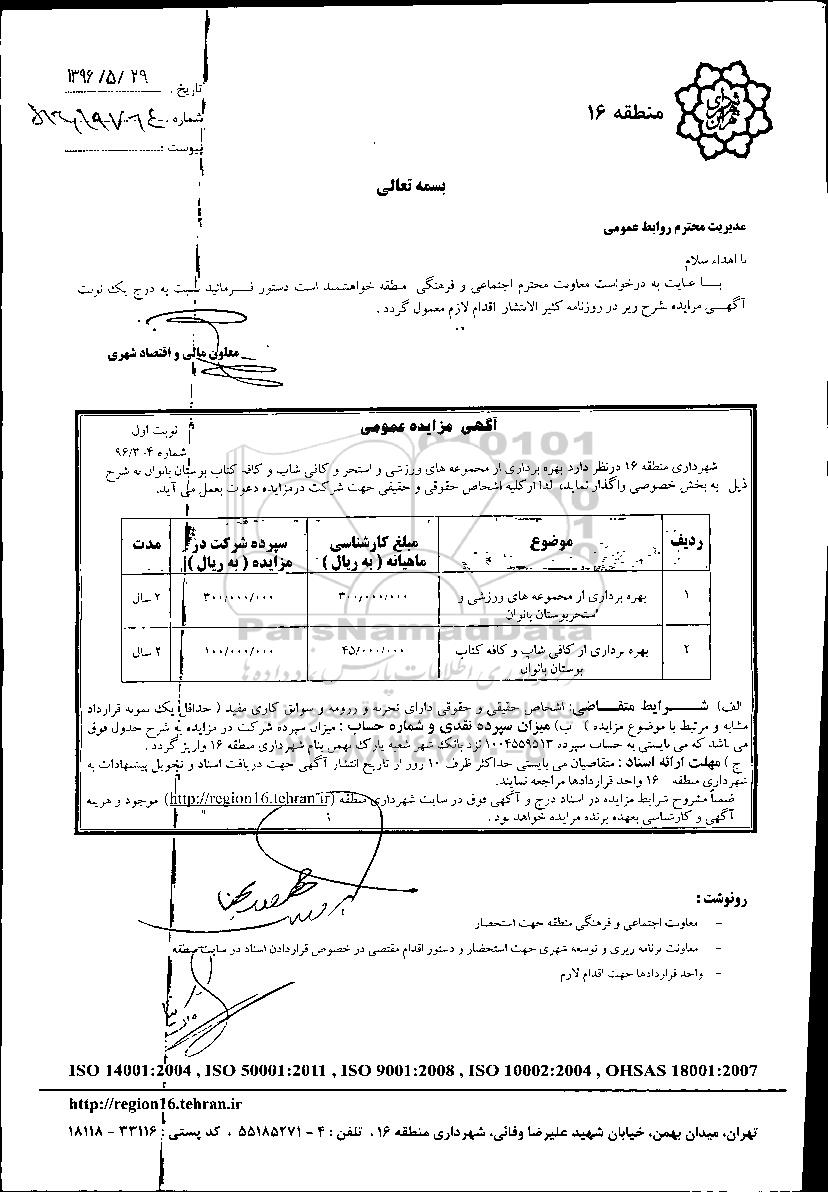 منطقه ۱۶
تاریخ . ۱۳۹۶/۵/۲۹
شماره .
پیوست :
بسمه تعالی
مدیریت محترم روابط عمومی
با اهداء سلام
با عنایت به درخواست معاونت محترم اجتماعی و فرهنگی منطقه خواهشمند است دستور فرمائید نسبت به درج یک نوبت
آگهی مزایده بشرح زیر در روزنامه کثیر الانتشار اقدام لازم معمول گردد .
معاون مالی و اقتصاد شهری
آگهی مزایده عمومی
نوبت اول
شماره ۹۶/۳۰۴
شهرداری منطقه ۱۶ درنظر دارد بهره برداری از مجموعه های ورزشی و استخر و کافی شاپ و کافه کتاب بوستان بانوان به شرح
ذیل به بخش خصوصی واگذار نماید، لذا از کلیه اشخاص حقوقی و حقیقی جهت شرکت در مزایده دعوت بعمل می آید.
ردیف موضوع مبلغ کارشناسی ماهیانه ( به ریال ) سپرده شرکت در مزایده ( به ریال ) مدت
۱ بهره برداری از مجموعه های ورزشی و استخر بوستان بانوان ۳۰۰/۰۰۰/۰۰۰ ۳۰۰/۰۰۰/۰۰۰ ۲ سال
۲ بهره برداری از کافی شاپ و کافه کتاب بوستان بانوان ۴۵/۰۰۰/۰۰۰ ۱۰۰/۰۰۰/۰۰۰ ۲ سال
الف) شرایط متقاضی: اشخاص حقیقی و حقوقی دارای تجربه و رزومه و سوابق کاری مفید ( حداقل یک نمونه قرارداد
مشابه و مرتبط با موضوع مزایده ) ب) میزان سپرده نقدی و شماره حساب : میزان سپرده شرکت در مزایده به شرح جدول فوق
می باشد که می بایستی به حساب سپرده ۱۰۰۴۵۵۹۵۱۳ نزد بانک شهر شعبه پارک بهمن بنام شهرداری منطقه ۱۶ واریز گردد .
ج ) مهلت ارائه اسناد : متقاضیان می بایستی حداکثر ظرف ۱۰ روز از تاریخ انتشار آگهی جهت دریافت اسناد و تحویل پیشنهادات به
شهرداری منطقه ۱۶ واحد قراردادها مراجعه نمایند.
ضمناً مشروح شرایط مزایده در اسناد درج و آگهی فوق در سایت شهرداری منطقه (http://region16.tehran.ir) موجود و هزینه
آگهی و کارشناسی بعهده برنده مزایده خواهد بود .
رونوشت :
- معاونت اجتماعی و فرهنگی منطقه جهت استحضار
- معاونت برنامه ریزی و توسعه شهری جهت استحضار و دستور اقدام مقتضی در خصوص قراردادن اسناد در سایت منطقه
- واحد قراردادها جهت اقدام لازم
ISO 14001:2004 , ISO 50001:2011 , ISO 9001:2008 , ISO 10002:2004 , OHSAS 18001:2007
http://region16.tehran.ir
تهران، میدان بهمن، خیابان شهید علیرضا وفائی، شهرداری منطقه ۱۶ . تلفن : ۴ - ۵۵۱۸۵۲۷۱ . کد پستی : ۳۳۱۱۶ - ۱۸۱۱۸
ParsNamadData